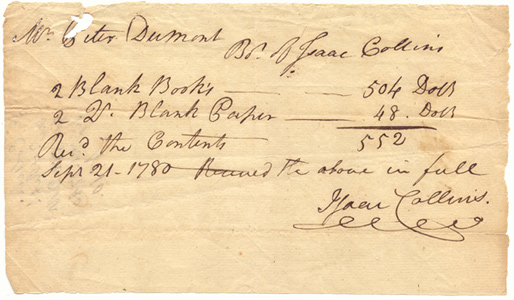 Mr. Peter Dumont
Bot. of Isaac Collins
2 Blank Books — 504 Dolls
2 Qr. Blank Paper — 48. Dolls
552
Recd. the Contents
Sepr 21- 1780 Received the above in full
Isaac Collins.